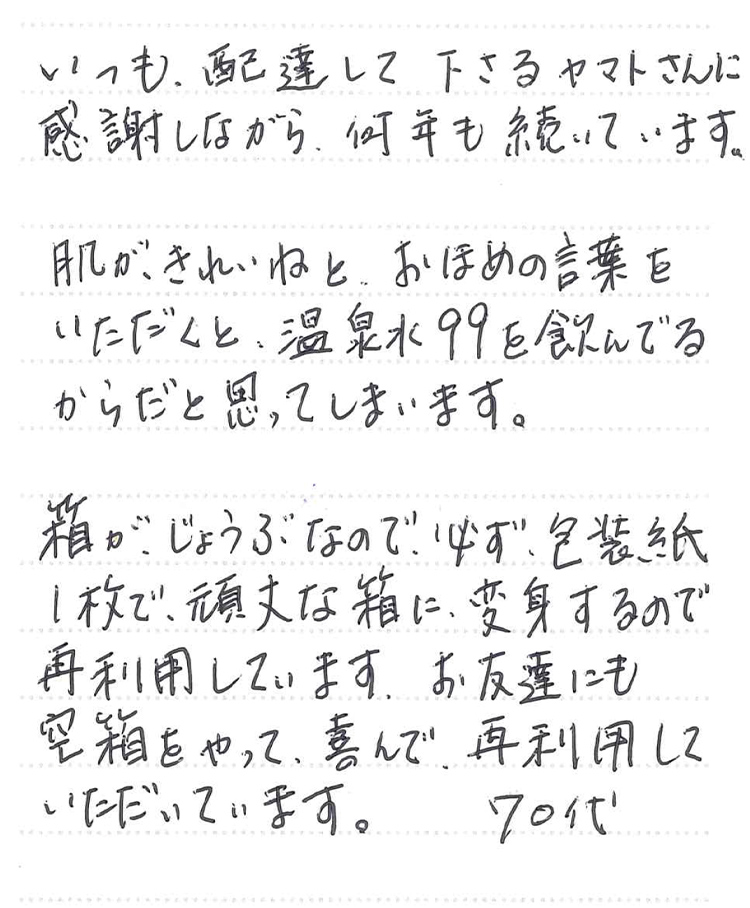 いつも、配達して下さるヤマトさんに
感謝しながら、何年も続いています。
肌が、きれいねと、おほめの言葉を
いただくと、温泉水99を飲んでる
からだと思ってしまいます。
箱が、じょうぶなので、必ず、包装紙
1枚で、頑丈な箱に、変身するので
再利用しています、お友達にも
空箱をやって、喜んで、再利用して
いただいています。 70代